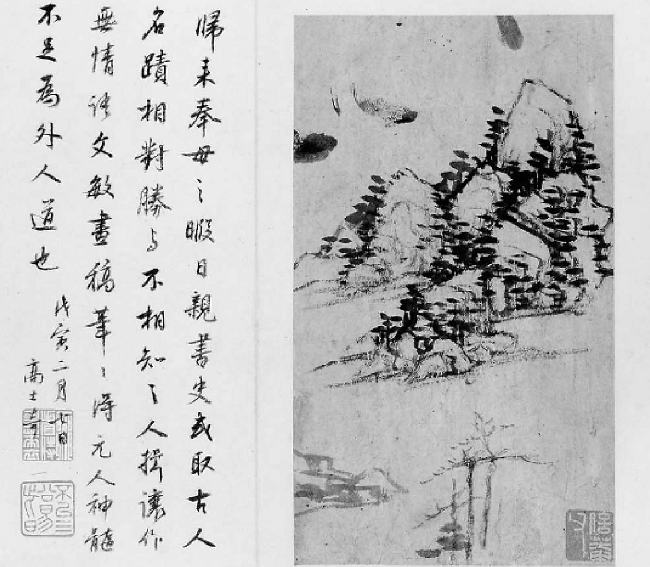 歸來奉母之暇日親書史或取古人
名蹟相對勝與不相知之人揖讓作
無情語文敏畫稿筆筆得元人神髓
不足為外人道也
戊寅二月七日
高士奇